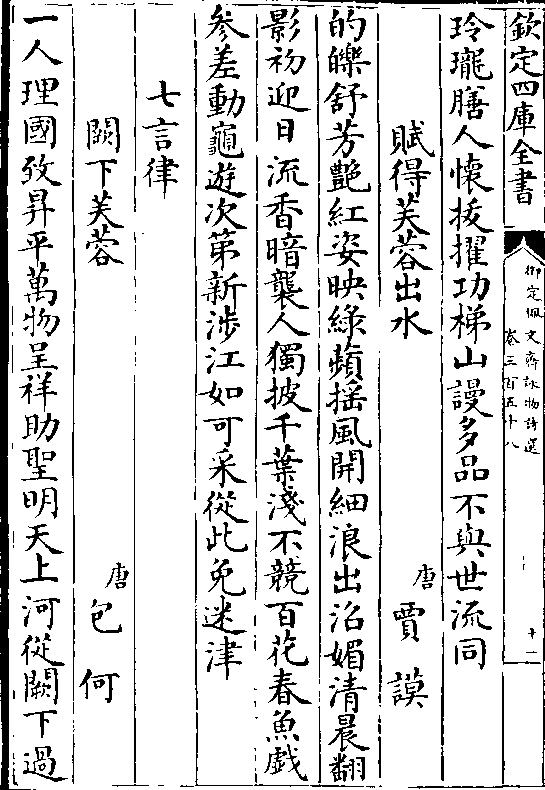 欽定四庫全書
御定佩文齋詠物詩選
卷三百五十八
十一
玲瓏膳人懷拔擢功梯山謾多品不與世流同
賦得芙蓉出水
唐
賈謨
的皪舒芳艷紅姿映綠蘋揺風開細浪出沼媚清晨翻
影初迎日流香暗襲人獨披千葉淺不競百花春魚戲
參差動龜遊次第新涉江如可采從此免迷津
七言律
闕下芙蓉
唐
包何
一人理國致昇平萬物呈祥助聖明天上河從闕下過